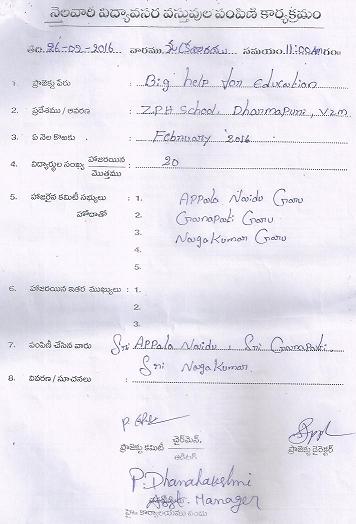 నెలవారీ విద్యావసర వస్తువుల పంపిణి కార్యక్రమం
తేది: 26-02-2016 వారము. సమయం. 11:00AM గం॥
1. ప్రాజెక్టు పేరు : Big help for Education
2. ప్రదేశము / ఆవరణ : Z.P.H School, Dharmapuri, VZM
3. ఏ నెల కొఱకు : February 2016
4. విద్యార్థుల సంఖ్య హాజరయిన : 20
మొత్తము
5. హాజరైన కమిటీ సభ్యులు : 1. APPala Naidu Garu
హోదాతో 2. Ganapati Garu
3. NagaKumar Garu
4.
5.
6. హాజరయిన ఇతర ముఖ్యులు : 1.
2.
3.
7. పంపిణీ చేసిన వారు : Sri APPala Naidu, Sri Ganapati.
Sri NagaKumar.
8. వివరణ / సూచనలు :
ప్రాజెక్టు కమిటీ ఛైర్మెన్, ప్రాజెక్టు డైరెక్టర్
ఆడిటర్
P. Dhanalakshmi
Asst. Manager
హెం కార్యాలయము నందు